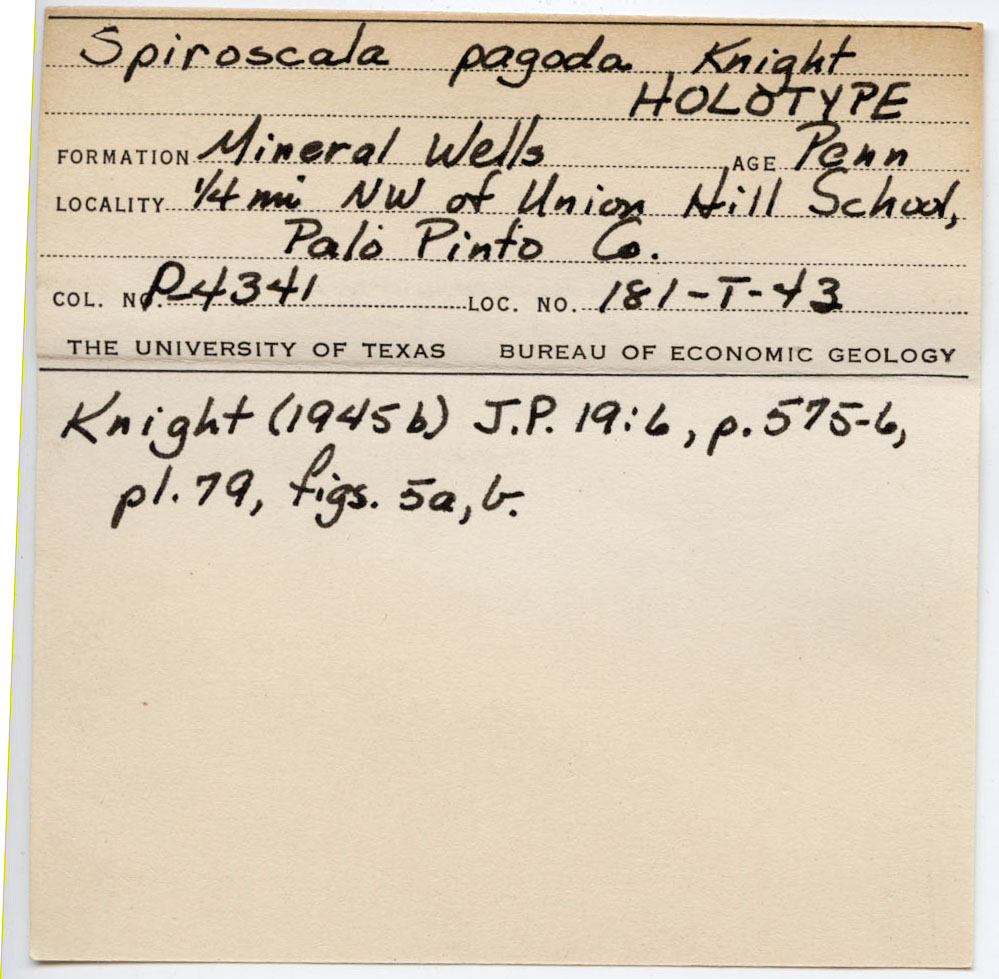 Spiroscala pagoda, Knight
HOLOTYPE
FORMATION Mineral Wells AGE Penn
LOCALITY 1/4 mi NW of Union Hill School,
Palo Pinto Co.
COL. NO. P-4341 LOC. NO. 181-T-43
THE UNIVERSITY OF TEXAS BUREAU OF ECONOMIC GEOLOGY
Knight (1945b) J.P. 19:6, p. 575-6,
pl. 79, figs. 5a, b.